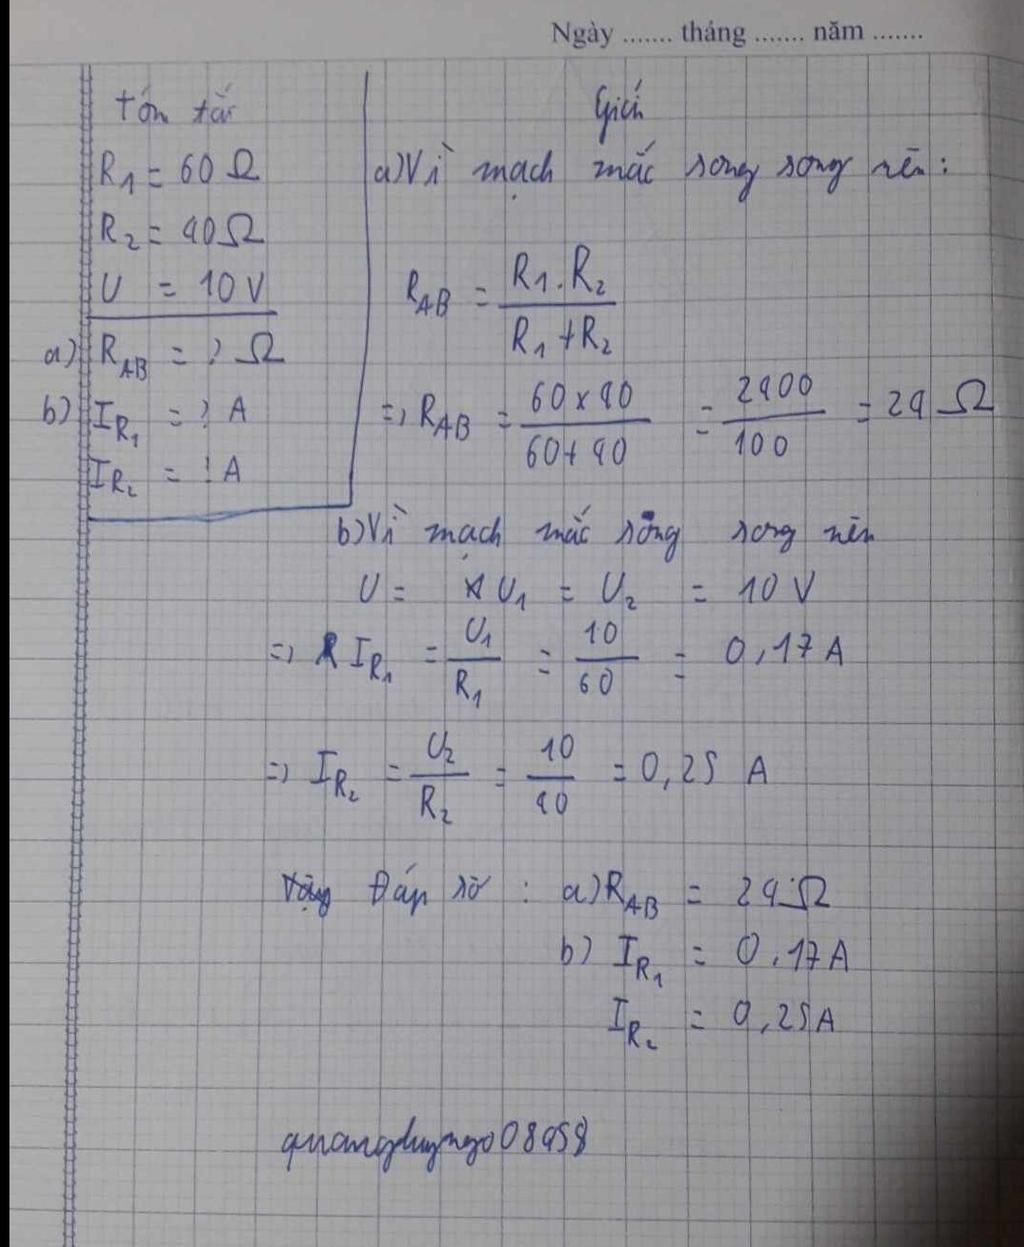 Ngày ....... tháng ....... năm .......
Tóm tắt
R₁ = 60 Ω
R₂ = 40 Ω
U = 10 V
a) R_AB = ? Ω
b) I_R₁ = ? A
I_R₂ = ? A
Giải
a) Vì mạch mắc song song nên:
R_AB = R₁.R₂ / R₁+R₂
=> R_AB = 60 x 40 / 60 + 40 = 2400 / 100 = 24 Ω
b) Vì mạch mắc song song nên
U = U₁ = U₂ = 10 V
=> I_R₁ = U₁ / R₁ = 10 / 60 = 0,17 A
=> I_R₂ = U₂ / R₂ = 10 / 40 = 0,25 A
Đáp số : a) R_AB = 24 Ω
b) I_R₁ = 0,17 A
I_R₂ = 0,25 A
quanghuyngo08458